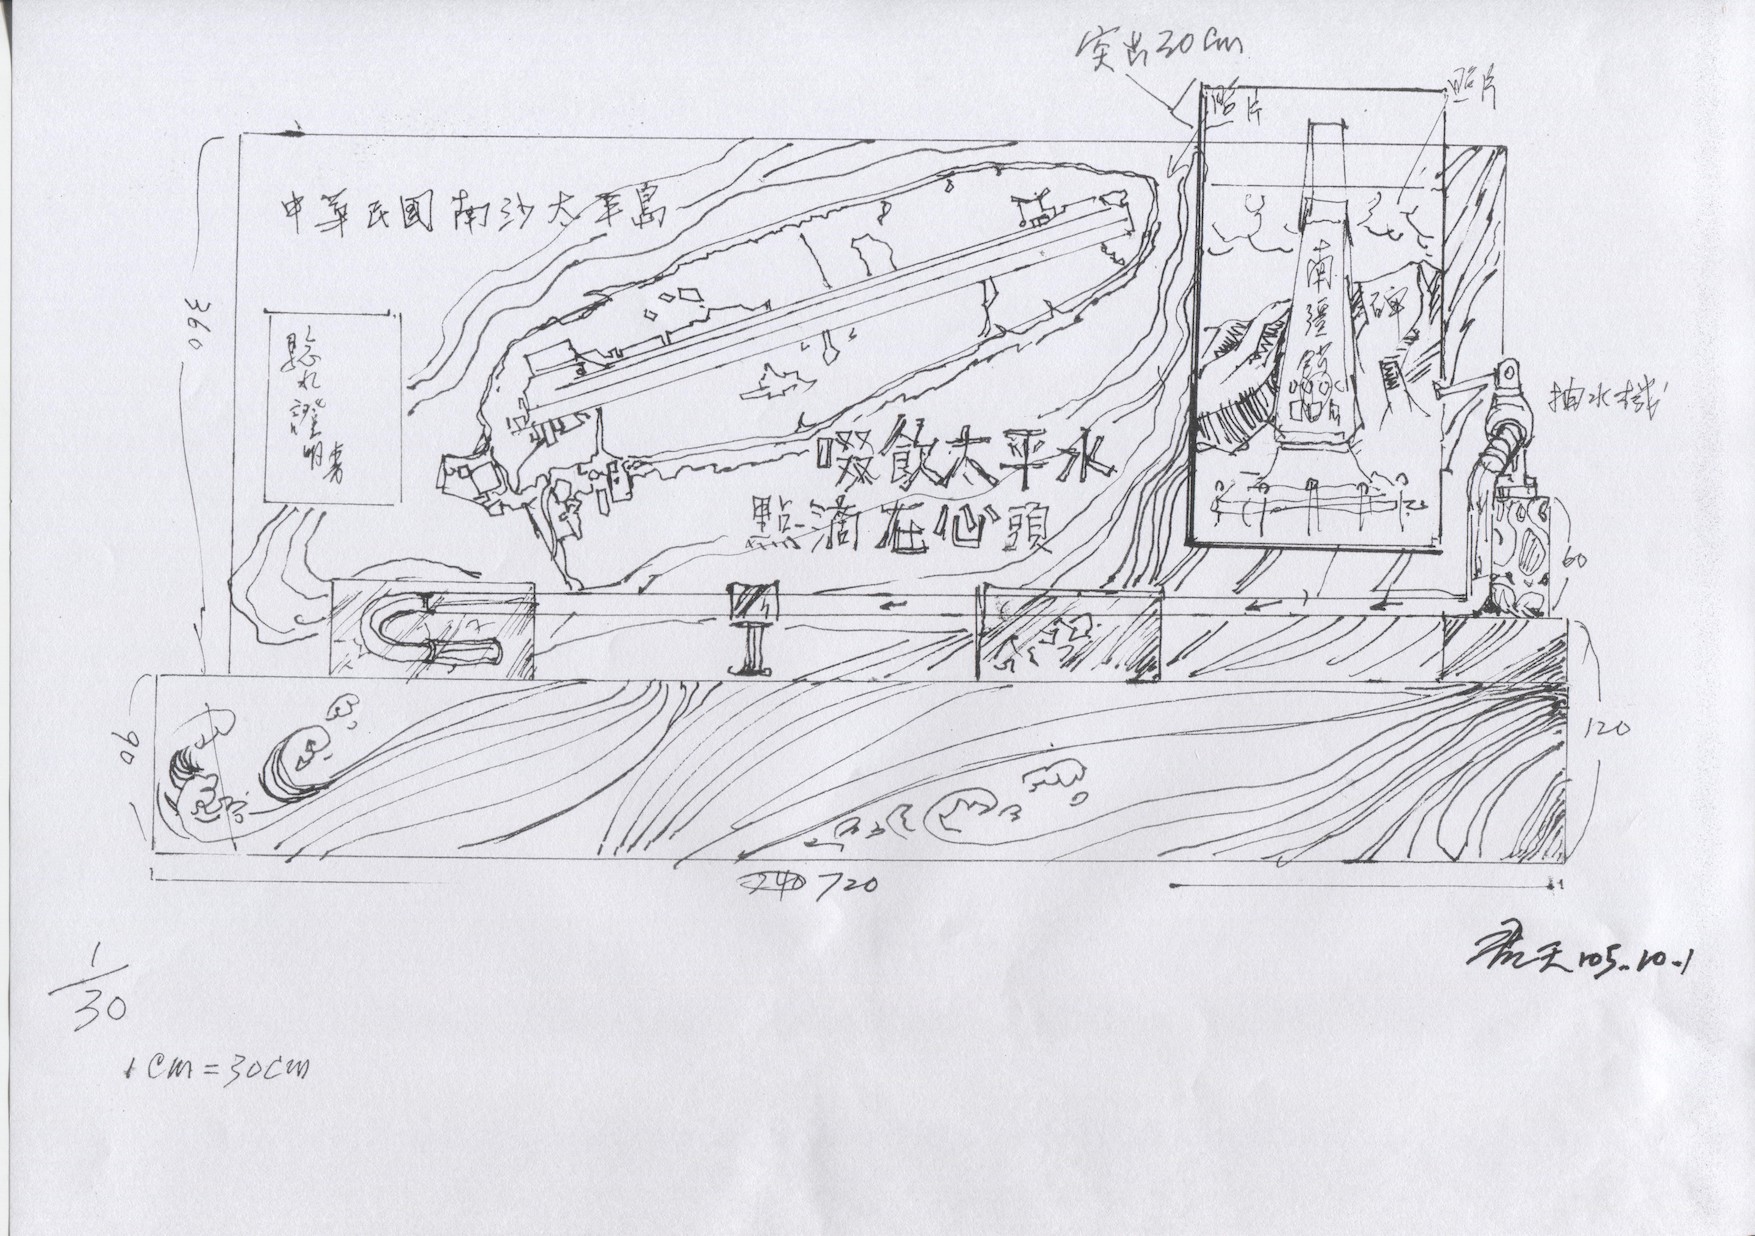 突出30cm
照片
照片
中華民國南沙太平島
360
驗水證明書
南疆鎖鑰
碑
抽水機
啜飲太平水
點滴在心頭
60
90
120
240 720
105.10.1
1/30
1cm=30cm